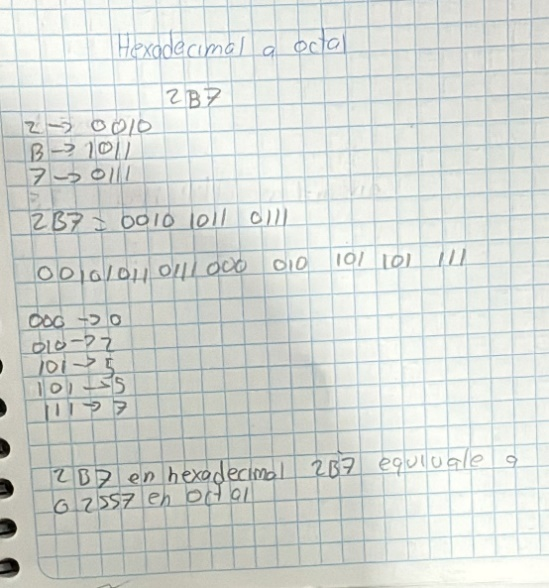 Hexadecimal a octal
2B7
2 → 0010
B → 1011
7 → 0111
2B7 = 0010 1011 0111
001010110111 000 010 101 101 111
000 → 0
010 → 2
101 → 5
101 → 5
111 → 7
2B7 en hexadecimal 2B7 equivale a
02557 en octal